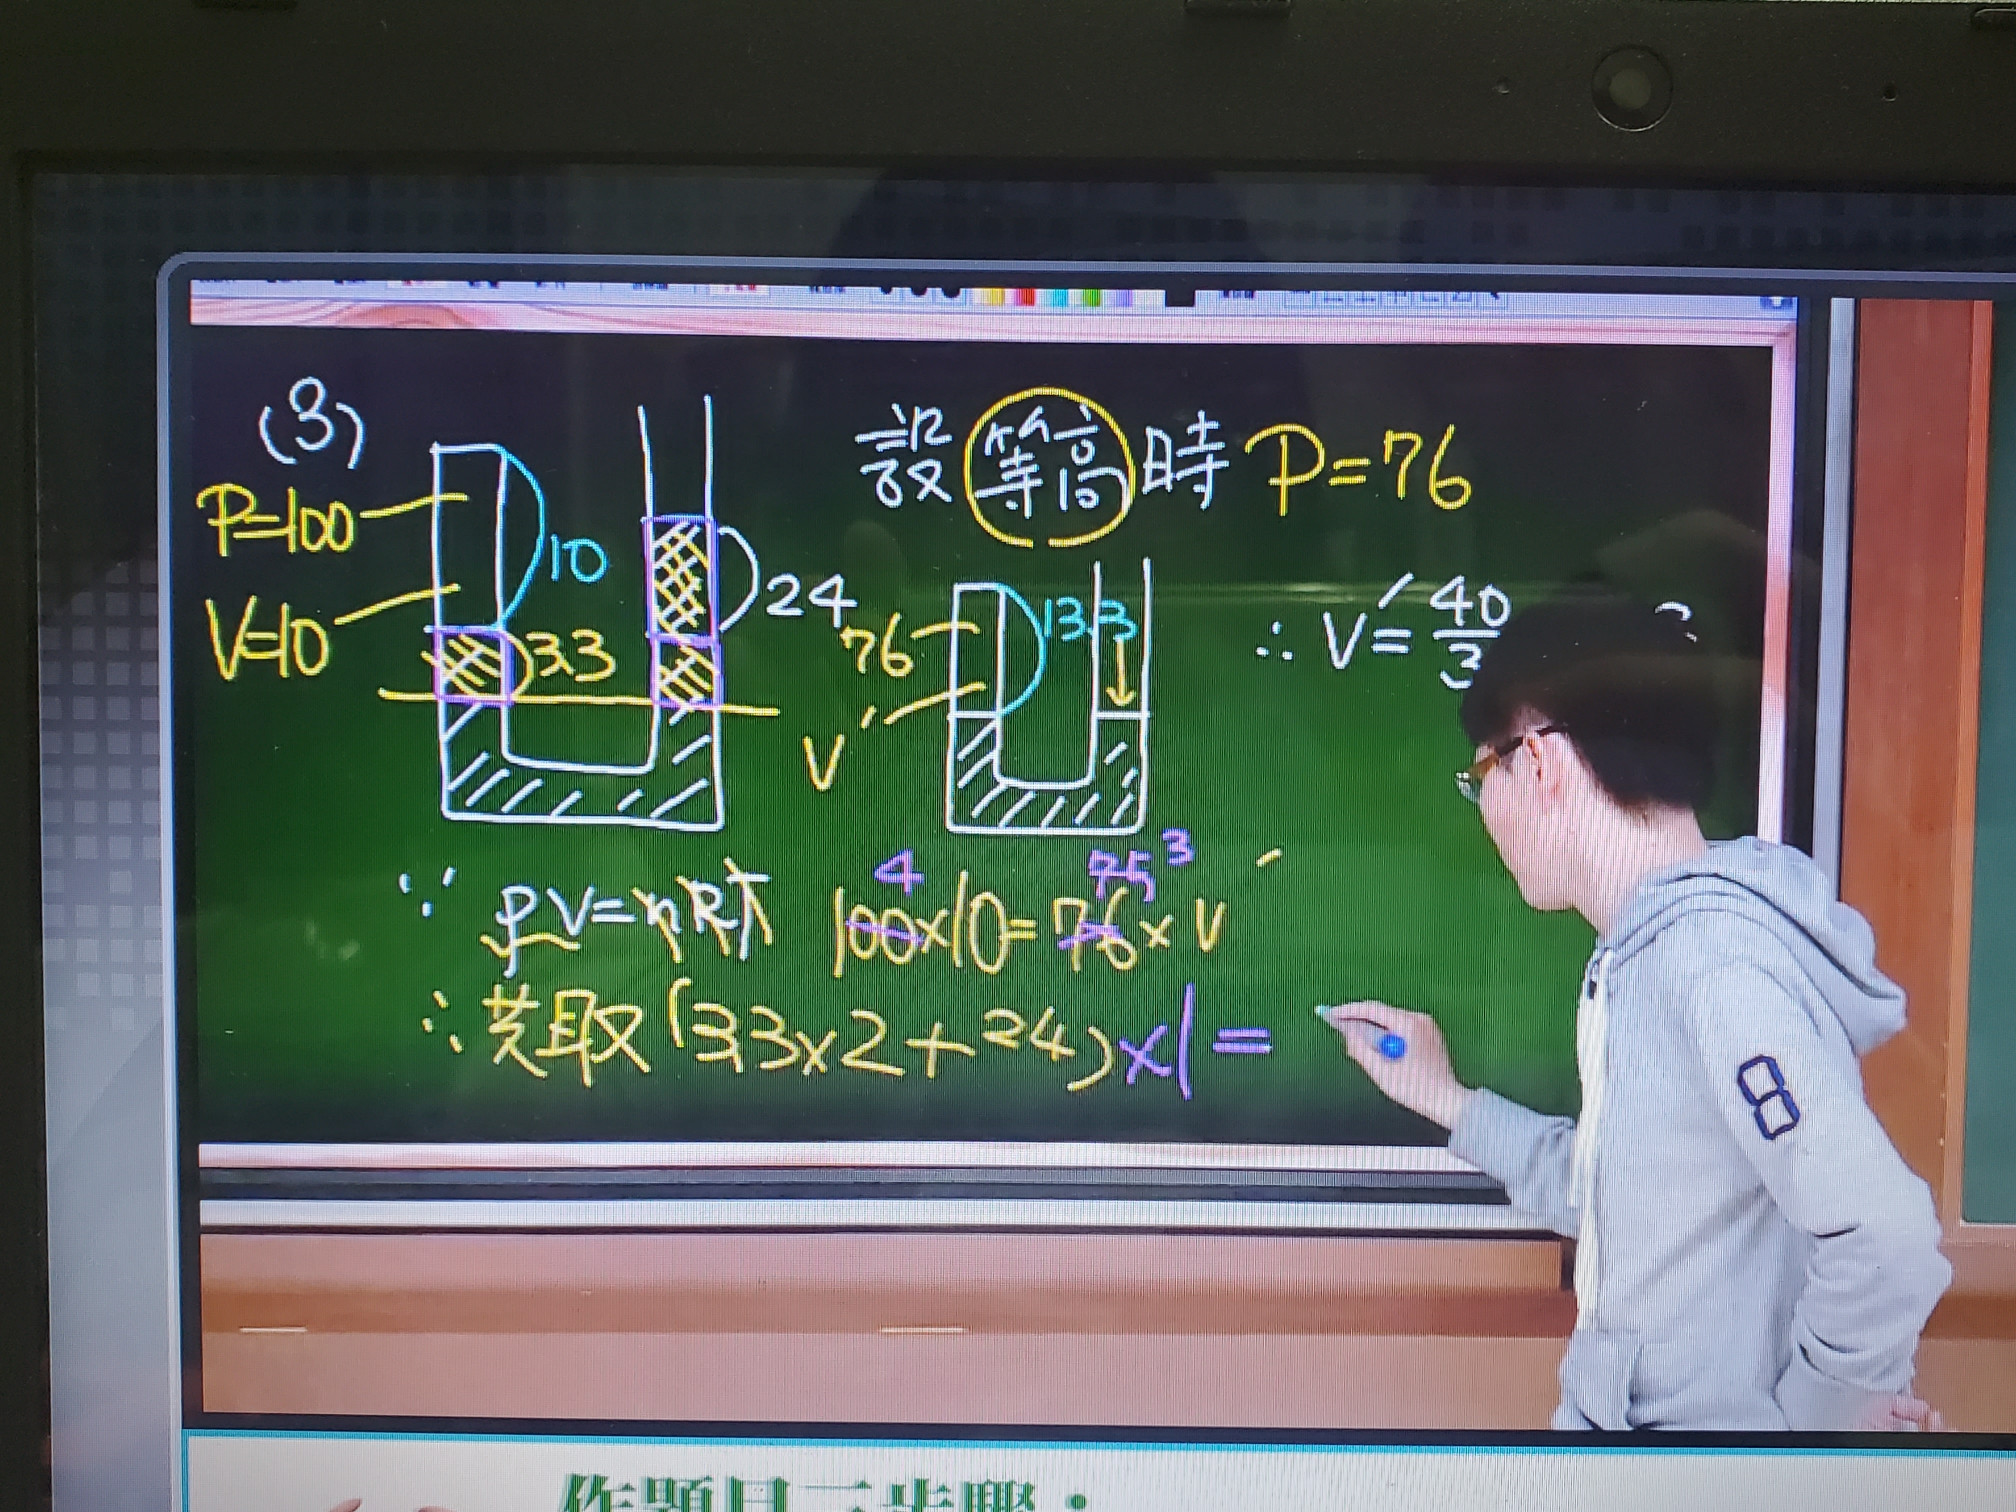 (3)
設等高時 P=76
P=100
10
24
V=10
3.3
76
13.3
V'
∴ V' = 40/3
∵ PV=nRT 100×10=76×V'
4
75 3
∴ 共取(3.3×2+24)×1=
8
作題目三步驟：